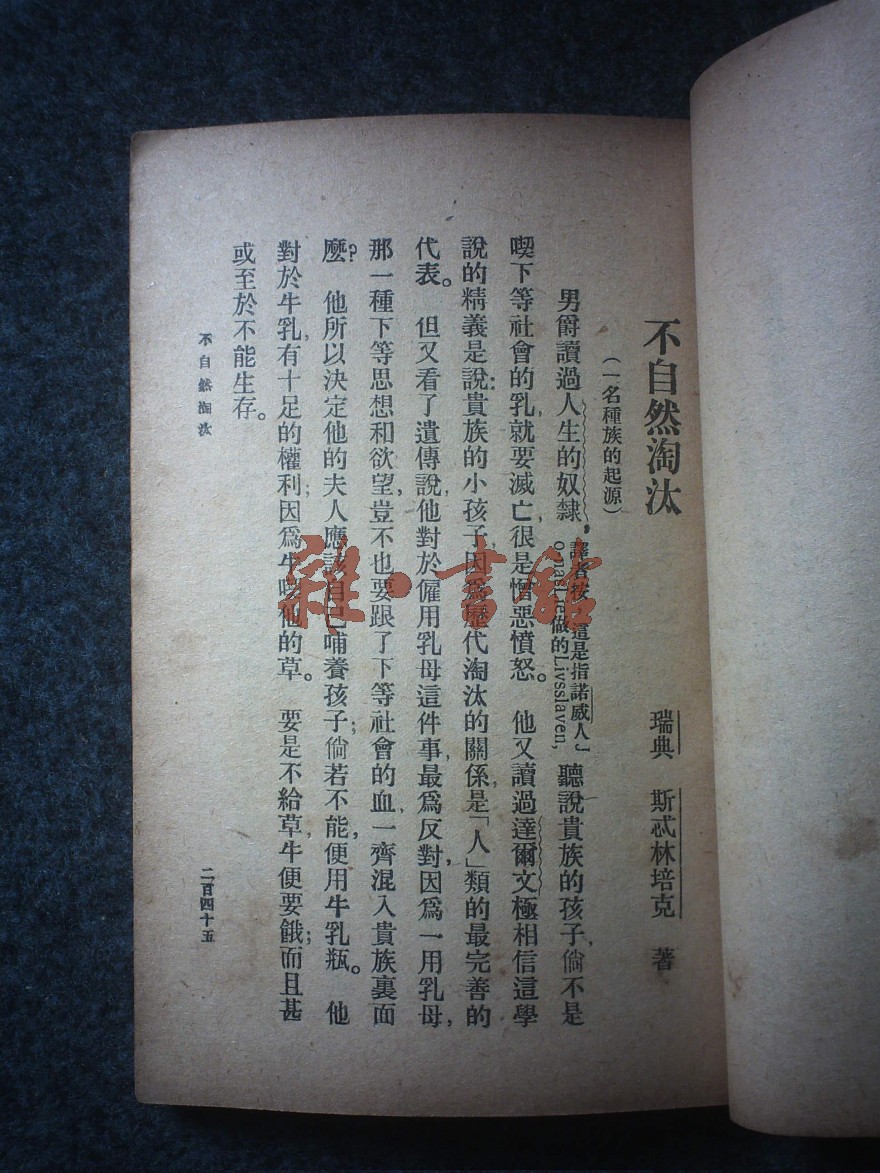 不自然淘汰
(一名種族的起源)
瑞典 斯忒林培克 著
男爵讀過人生的奴隸,「譯者按 這是指諾威人 onas Lie做的Livsslaven,」聽說貴族的孩子,倘不是
喫下等社會的乳,就要滅亡,很是憎惡憤怒。 他又讀過達爾文極相信這學
說的精義是說:貴族的小孩子,因爲歷代淘汰的關係,是「人」類的最完善的
代表。 但又看了遺傳說,他對於僱用乳母這件事,最爲反對,因爲一用乳母,
那一種下等思想和欲望,豈不也要跟了下等社會的血,一齊混入貴族裏面
麼? 他所以決定他的夫人應該自己哺養孩子;倘若不能,便用牛乳瓶。 他
對於牛乳,有十足的權利;因爲牛喫他的草。 要是不給草,牛便要餓;而且甚
或至於不能生存。
不自然淘汰
二百四十五
雜·書館